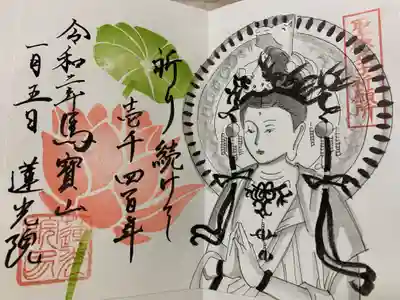 祈り続けて
壱千四百年
令和二年 馬寶山
一月五日 蓮光院